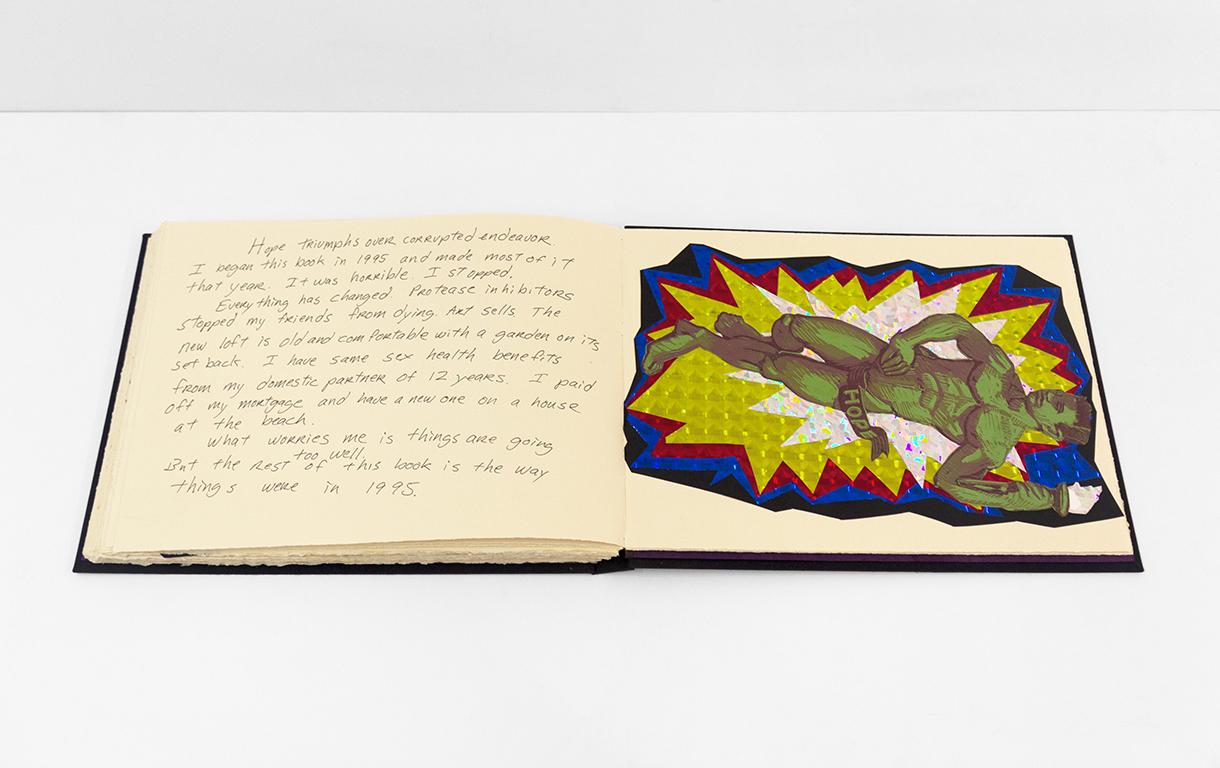 Hope triumphs over corrupted endeavor.
I began this book in 1995 and made most of it
that year. It was horrible. I stopped.
Everything has changed. Protease inhibitors
stopped my friends from dying. Art sells. The
new loft is old and comfortable with a garden on its
set back. I have same sex health benefits
from my domestic partner of 12 years. I paid
off my mortgage and have a new one on a house
at the beach.
What worries me is things are going
too well.
But the rest of this book is the way
things were in 1995.
HOP